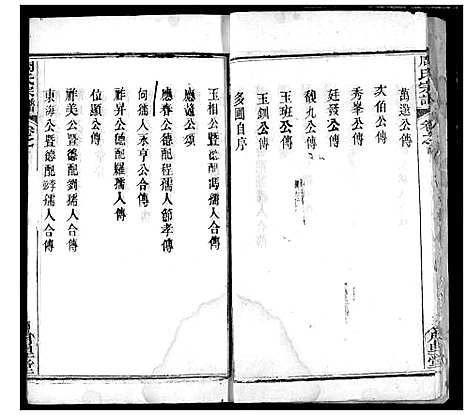 周氏宗譜
萬選公傳
次伯公傳
秀峯公傳
廷發公傳
馥九公傳
玉班公傳
玉釧公傳
多圃自序
玉相公暨德配馮孺人合傳
應遠公頌
應春公德配程孺人節孝傳
何孺人永亨公合傳
祚昇公德配羅孺人傳
位顯公傳
祚美公暨德配劉孺人合傳
東海公暨德配李孺人合傳
周氏宗譜